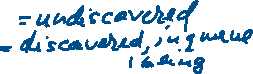 = undiscovered
= discovered, in queue
being